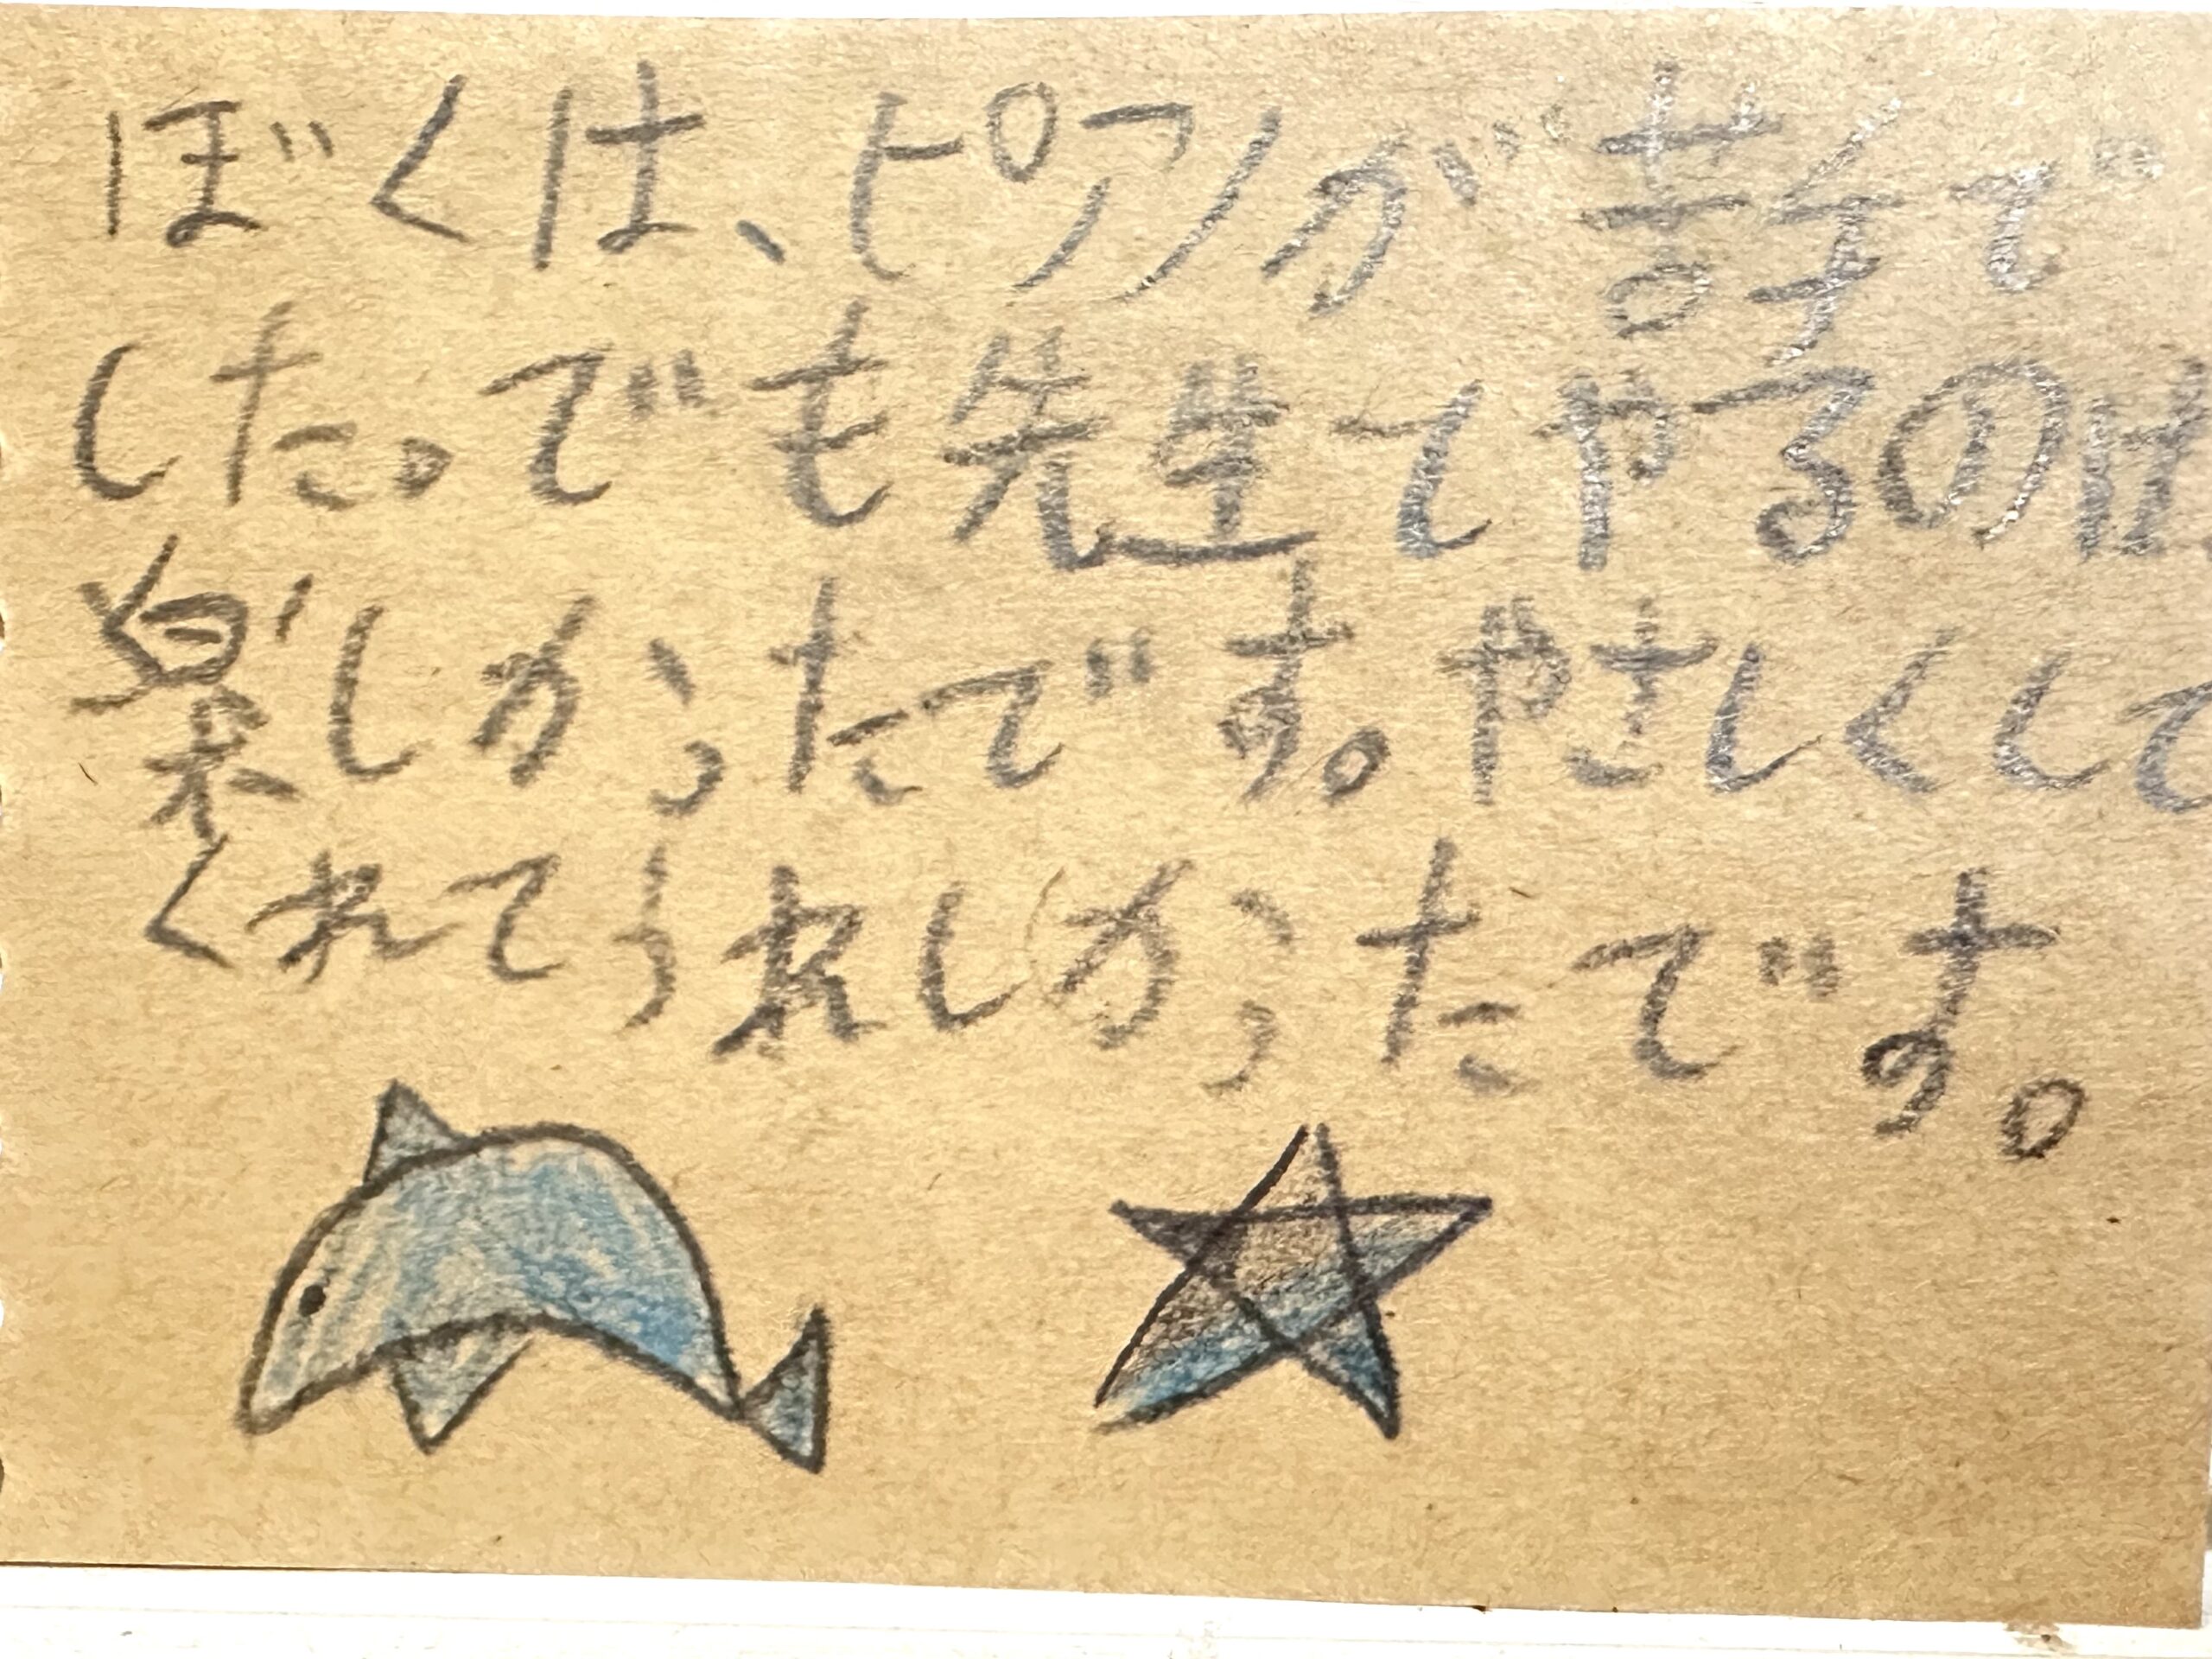 ぼくは、ピアノが苦手で
した。でも先生とやるのは
楽しかったです。やさしくして
くれてうれしかったです。